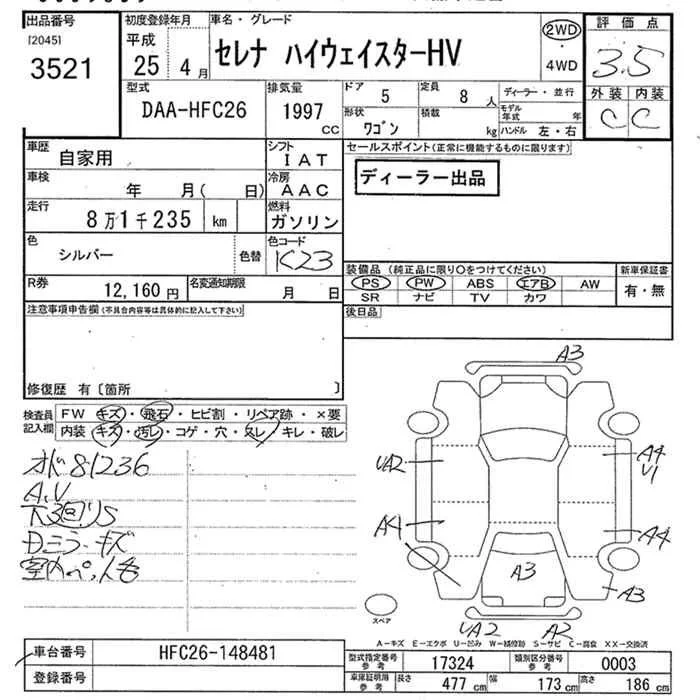 出品番号 初度登録年月 車名・グレード 2WD 評価点
[2045] 平成 セレナ ハイウェイスターHV ・ 3.5
3521 25 4月 4WD 外装 内装
型式 排気量 ドア 5 定員 8人 ディーラー・並行 C C
DAA-HFC26 1997 cc 形状 ワゴン 積載 kg モデル年式 年
ハンドル 左・右
車歴 自家用 シフト IAT セールスポイント(正常に機能するものに限ります)
車検 年 月( 日) 冷房 AAC ディーラー出品
走行 8万1千235 km 燃料 ガソリン
色 シルバー 色替 色コード K23
R券 12,160円 名変通知期限 月 日 装備品 (純正品に限り○をつけてください) 新車保証書
PS PW ABS エアB AW 有・無
SR ナビ TV カワ
注意事項申告欄(不具合内容等は具体的に記入して下さい) 後日品
修復歴 有〔箇所 〕
検査員記入欄 FW キズ・飛石・ヒビ割・リペア跡・×要
内装 キズ・汚レ・コゲ・穴・スレ・キレ・破レ
A3
オド81236
A,V
下回りS
Dミラーキズ
UA2
A4
A4
U1
A4
A3
A3
UA2 A2
スペア
A-キズ E-エクボ U-凹み W-補修跡 S-サビ C-腐食 XX-交換済
車台番号 HFC26-148481 型式指定番号 参考 17324 類別区分番号 参考 0003
登録番号 車庫証明用 参考 長さ 477cm 幅 173cm 高さ 186cm